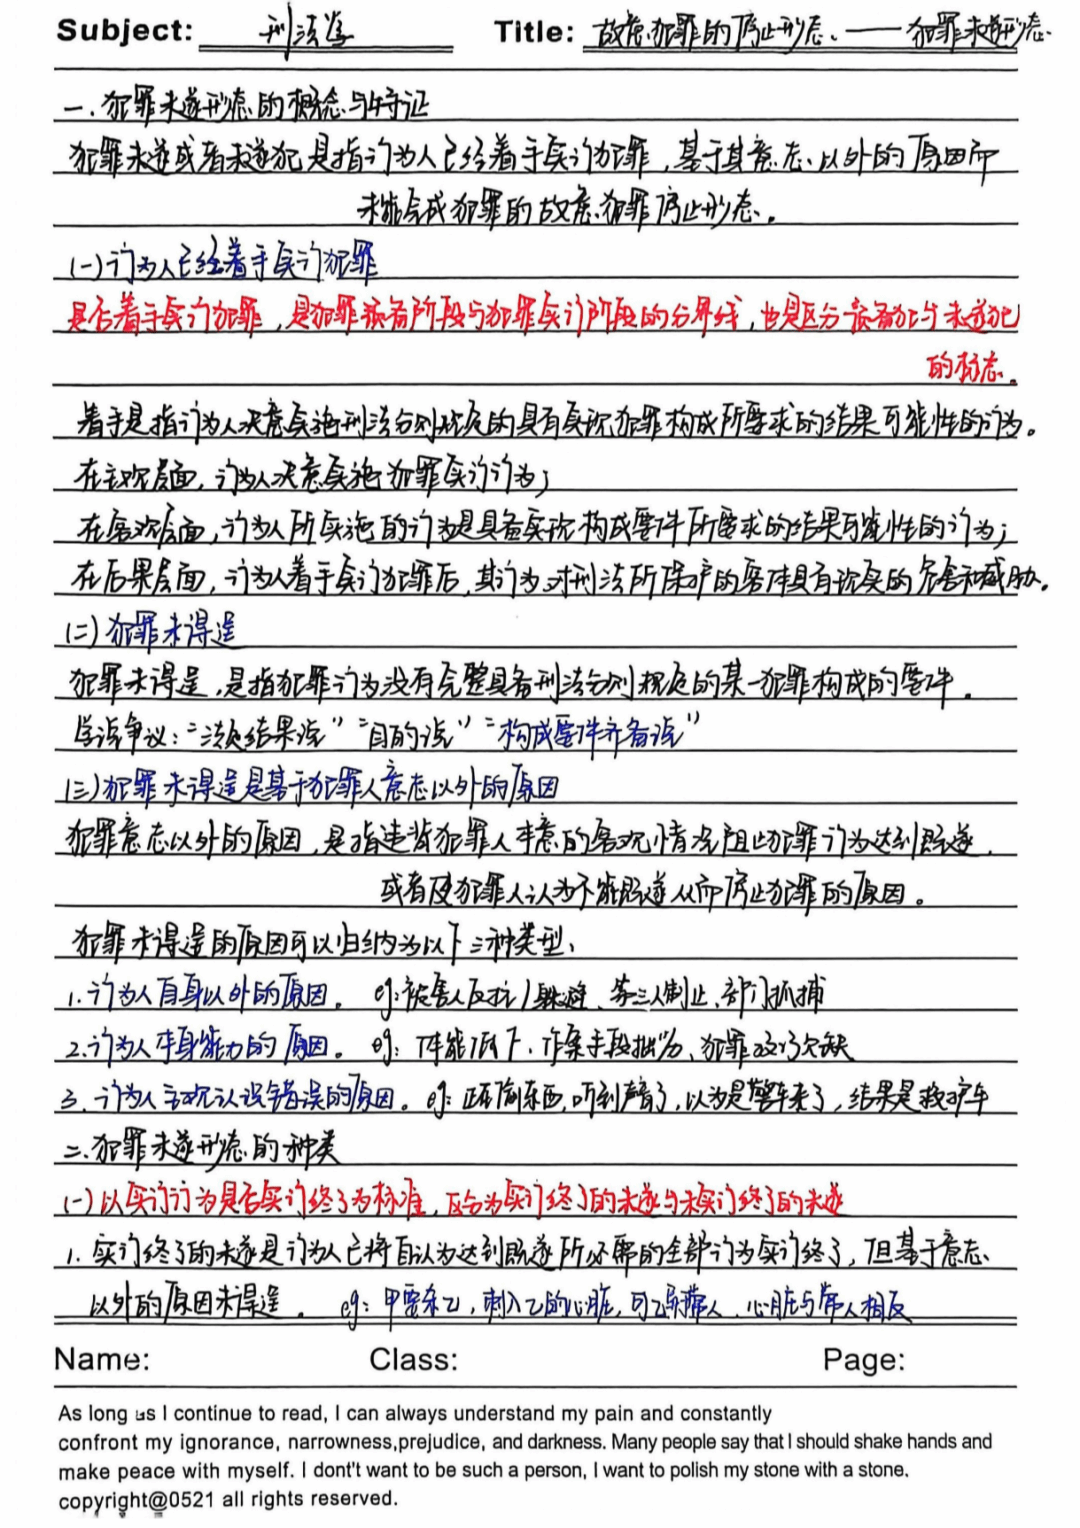 Subject: 刑法学 Title: 故意犯罪的停止形态、——犯罪未遂形态
一.犯罪未遂形态的概念与特征
犯罪未遂或者未遂犯是指行为人已经着手实行犯罪,基于其意志以外的原因而
未能完成犯罪的故意犯罪停止形态。
(一)行为人已经着手实行犯罪
是否着手实行犯罪,是犯罪预备阶段与犯罪实行阶段的分界线,也是区分预备犯与未遂犯
的标志。
着手是指行为人决意实施刑法分则规定的具有实现犯罪构成所要求的结果可能性的行为。
在主观层面,行为人决意实施犯罪实行行为;
在客观层面,行为人所实施的行为是具备实现构成要件所要求的结果可能性的行为;
在后果层面,行为人着手实行犯罪后,其行为对刑法所保护的客体具有现实的危害和威胁。
(二)犯罪未得逞
犯罪未得逞,是指犯罪行为没有完整具备刑法分则规定的某一犯罪构成的要件。
学说争议:“法定结果说”“目的说”“构成要件齐备说”
(三)犯罪未得逞是基于犯罪人意志以外的原因
犯罪意志以外的原因,是指违背犯罪人本意的客观情况阻止犯罪行为达到既遂,
或者使犯罪人认为不能既遂从而停止犯罪的原因。
犯罪未得逞的原因可以归纳为以下三种类型:
1.行为人自身以外的原因。 eg:被害人反抗/躲避、第三人制止、部门抓捕
2.行为人本身能力的原因。 eg:体能低下、作案手段拙劣、犯罪技巧欠缺
3.行为人主观认识错误的原因。eg:正在偷东西,听到声音了,以为是警车来了,结果是救护车
二.犯罪未遂形态的种类
(一)以实行行为是否实行终了为标准,区分为实行终了的未遂与未实行终了的未遂
1.实行终了的未遂是行为人已将自认为达到既遂所必需的全部行为实行终了,但基于意志
以外的原因未得逞。 eg:甲要杀乙,刺入乙的心脏,可乙异常人,心脏与常人相反
Name: Class: Page:
As long as I continue to read, I can always understand my pain and constantly
confront my ignorance, narrowness,prejudice, and darkness. Many people say that I should shake hands and
make peace with myself. I dont't want to be such a person, I want to polish my stone with a stone.
copyright@0521 all rights reserved.